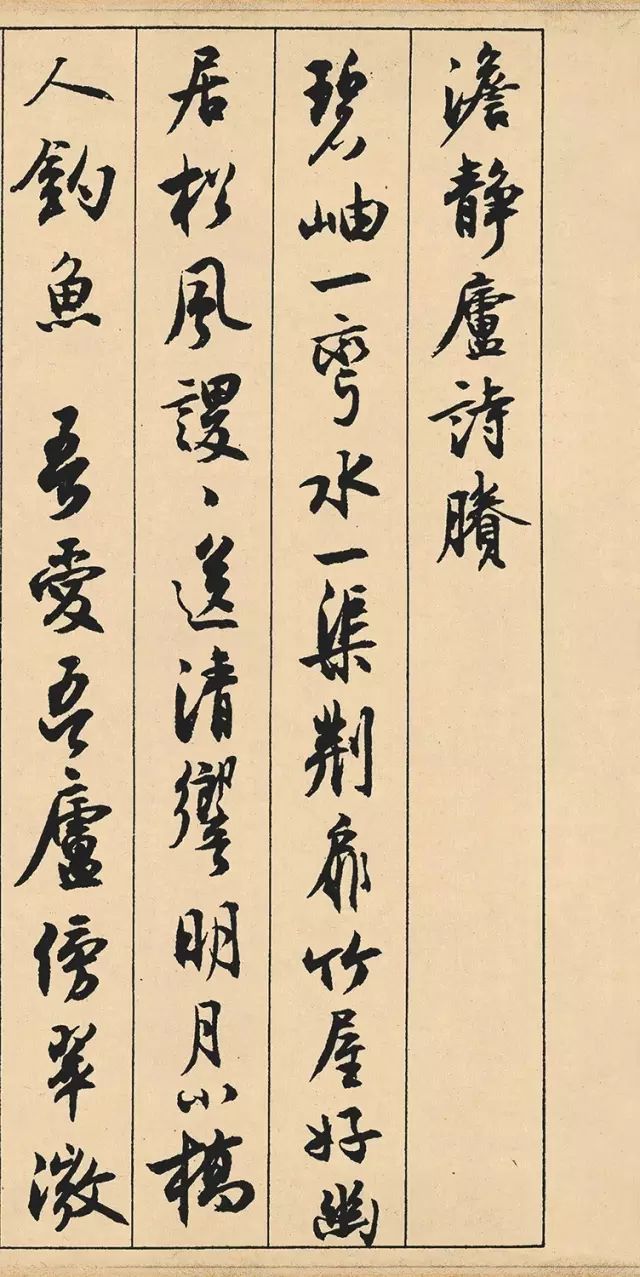 澹静廬詩賸
碧岫一彎水一渠荆扉竹屋好幽
居松風謖〻送清響明月小橋
人釣魚　吾愛吾廬傍翠微